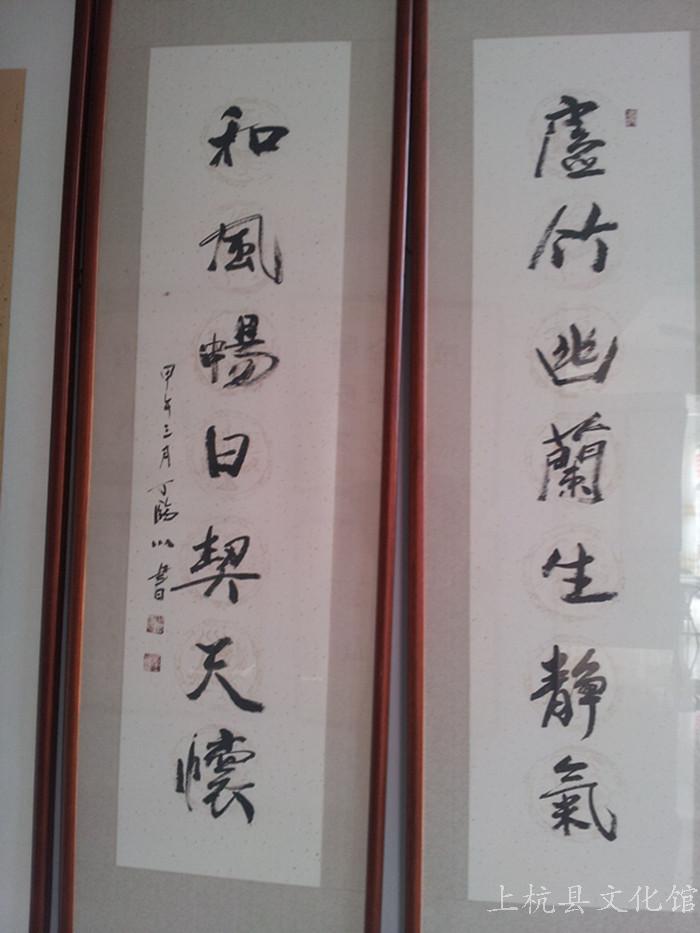 虛竹幽蘭生靜氣
和風暢日契天懷
甲午三月丁臨川書
上杭县文化馆